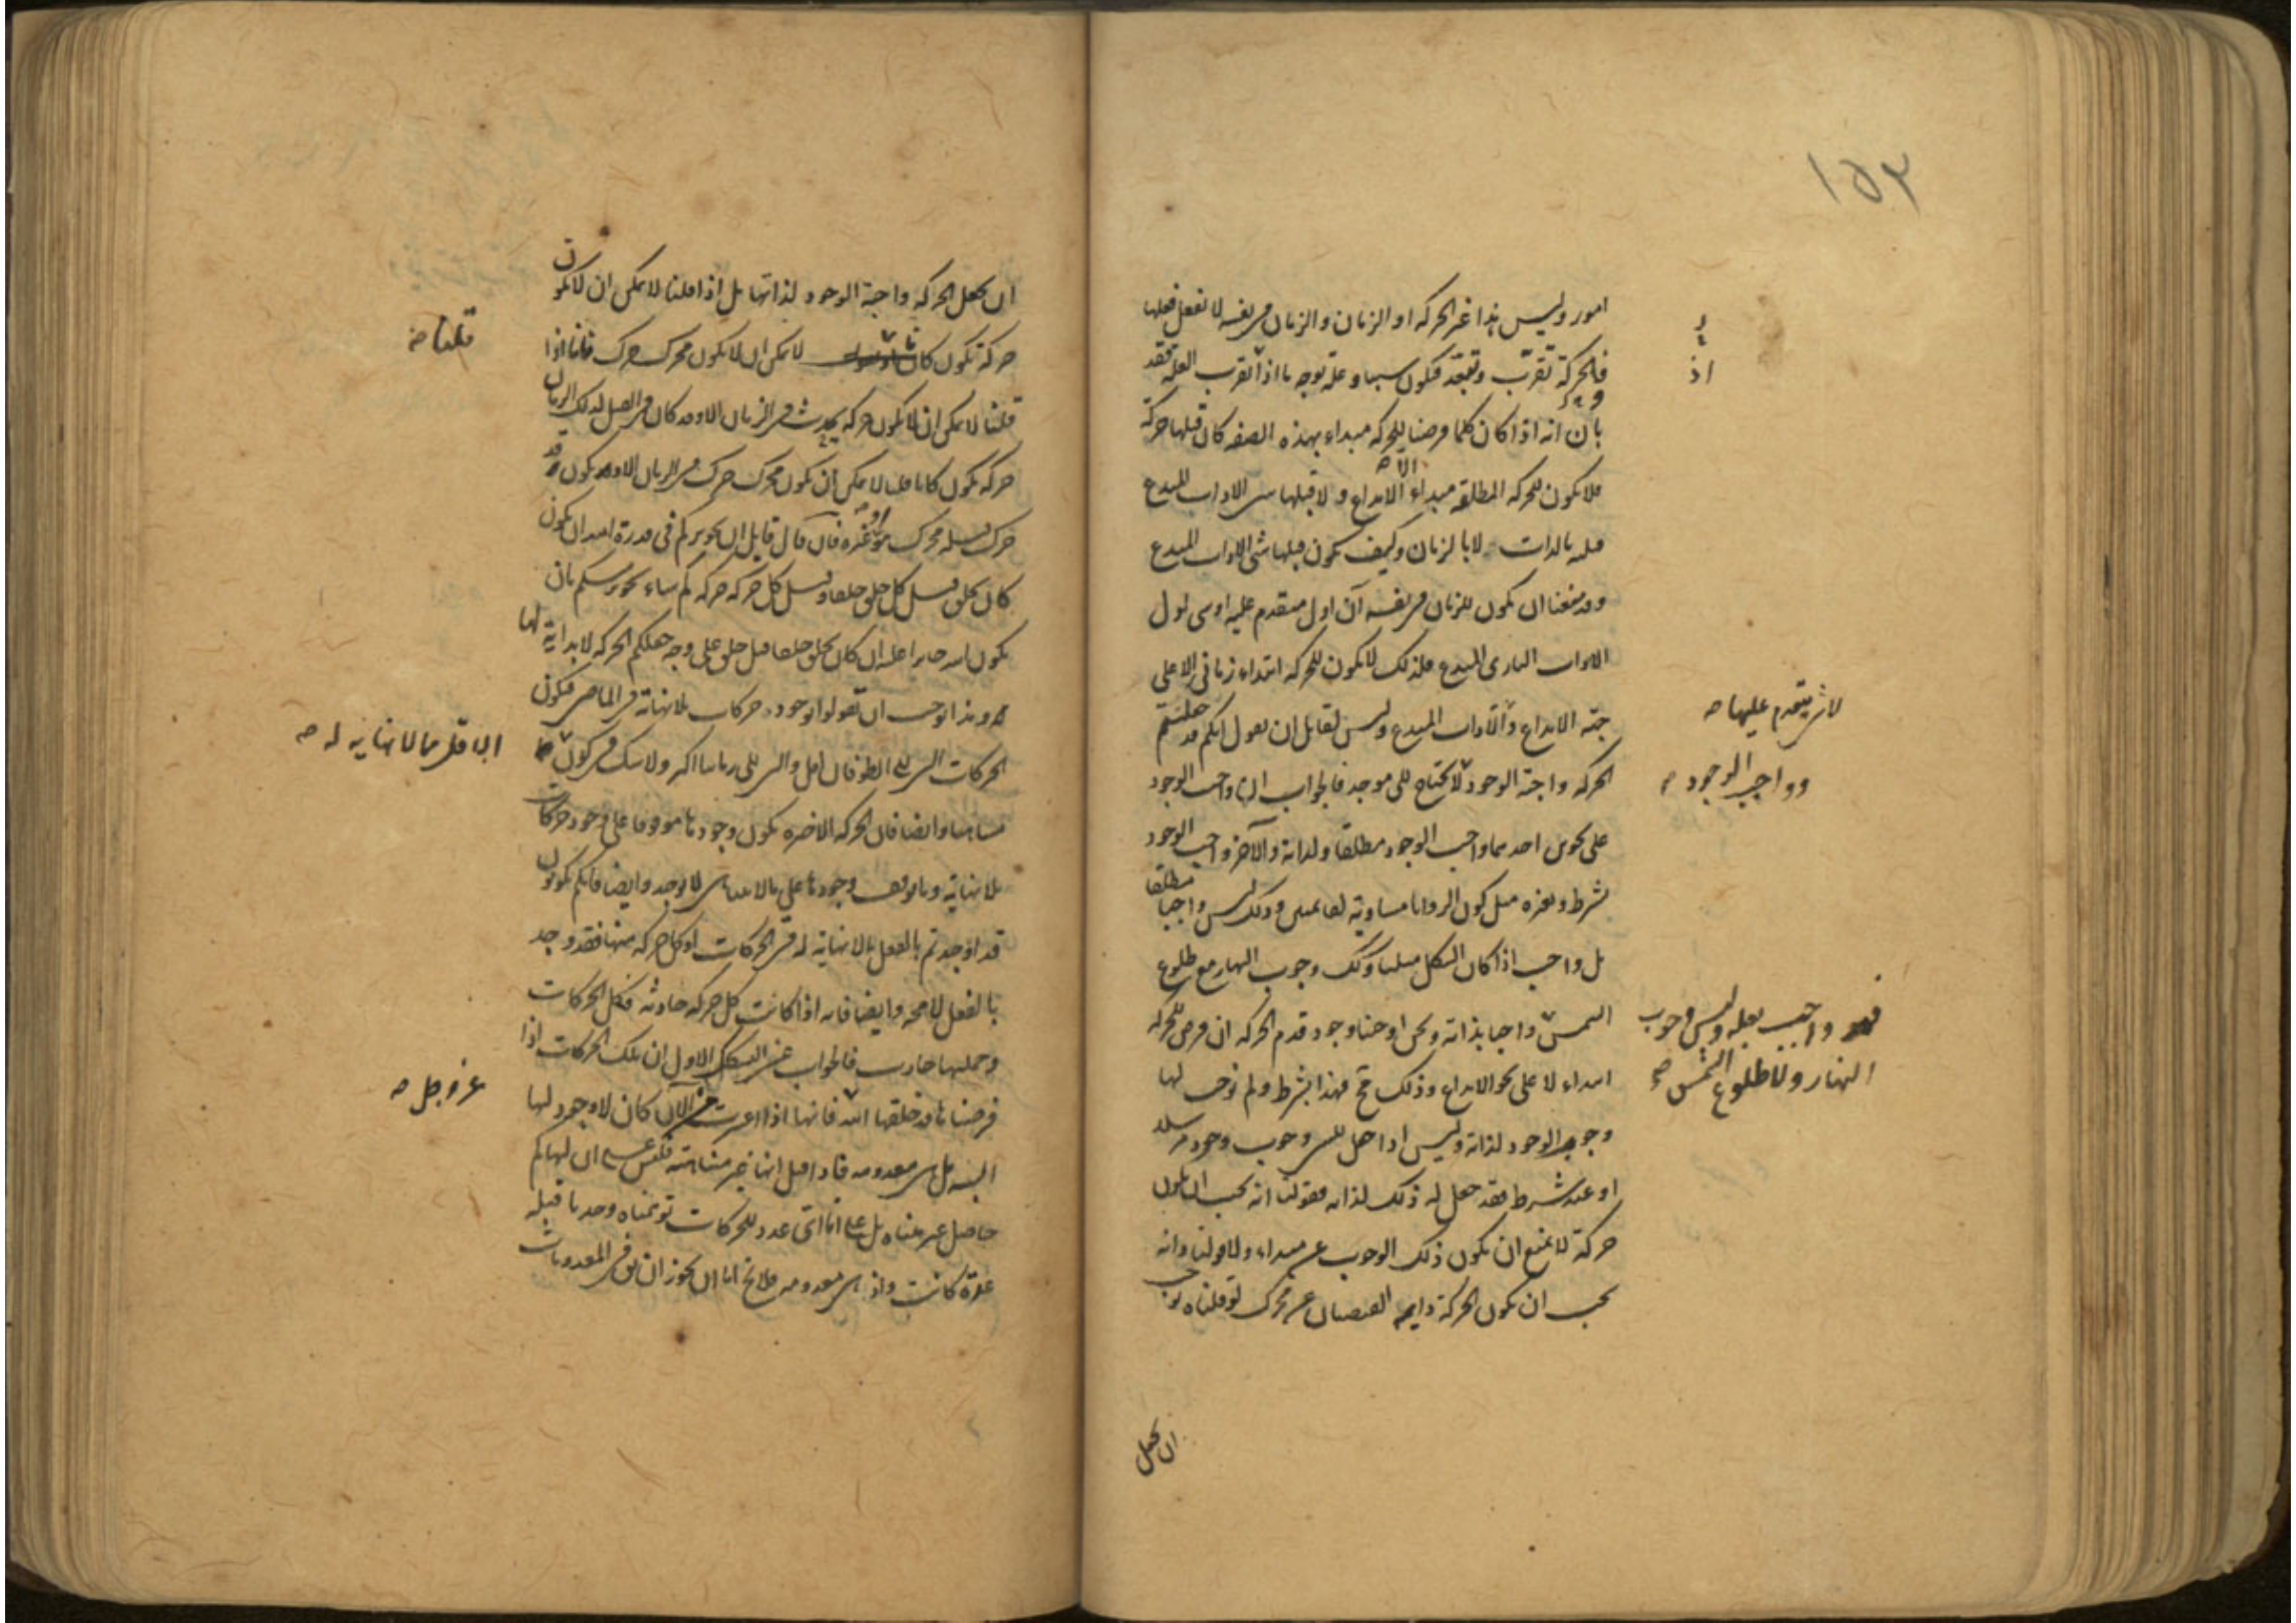 ١٥٣
امور وليس هذا غير الحركه او الزمان والزمان في نفسه لا يفعل فعلها
فالحركة تقرب وتبعد فتكون سببا وعلة بوجه ما اذ تقرب العلة فقد
بان انه اذا كان كلما فرضنا للحركه مبداء بهذه الصفه كان قبلها حركة
فلا يكون للحركه المطلقه مبداء الا الابداع ولا قبلها شي الا ذات المبدع
قبله بالذات لا بالزمان وكيف يكون قبلها شي الا ذات المبدع
وقد منعنا ان يكون للزمان في نفسه آن اول متقدم عليه او شي اول
الا ذات البارى المبدع فلذلك لا يكون للحركه ابتداء زمانى الا على
جهة الابداع والا ذات المبدع وليس لقايل ان يقول انكم قد جعلتم
الحركه واجبة الوجود لا تحتاج الى موجد فالجواب ان واجب الوجود
على نحوين احدهما واجب الوجود مطلقا ولذاته والآخر واجب الوجود
بشرط وبغيره مثل كون الزوايا مساوية لقايمتين وذلك ليس واجبا مطلقا
بل واجب اذا كان الشكل مثلثا وكك وجوب النهار مع طلوع
الشمس واجبا بذاته ونحن اوجبنا وجود قدم الحركه ان فرض للحركه
ابتداء لا على نحو الابداع وذلك مح فهذا بشرط ولم نوجب لها
وجوب الوجود لذاته وليس اذا جعل للشى وجوب وجود من سلب
او عند شرط فقد جعل له ذلك لذاته فقولنا انه يجب ان يكون
حركة لا يمنع ان يكون ذلك الوجوب عن مبداء ولا قولنا وانه
يجب ان يكون الحركة دايمه الفيضان عن محرك لو قلناه يوجب
اذ
لا شى يتقدم عليها صح
وواجب الوجود
واجب بعلة وليس وجوب
النهار ولا طلوع الشمس صح
ان يجعل
ان يجعل الحركه واجبة الوجود لذاتها بل اذا قلنا لا يمكن ان لا يكون
حركة تكون كان لا يمكن ان لا يكون محرك حرك فانا اذا
قلنا لا يمكن ان لا يكون حركه يحدث في الزمان الا وقد كان في قبل ذلك الزمان
حركه يكون كانا قلنا لا يمكن ان يكون محرك حرك في الزمان الا ويكون قد
حرك قبله محرك هو او غيره فان قال قايل ان تجويزكم في قدرة الله ان يكون
كان يخلق قبل كل خلق خلقا وقبل كل حركه حركه
يكون الله جايزا عليه ان كان يخلق خلقا قبل خلق على وجه جعلكم الحركه لا بداية لها
وهذا يوجب ان تقولوا بوجود حركات بلا نهاية في الماضى فيكون
الحركات التى الى الطوفان اقل والتى الى زماننا اكثر ولا شك في كون
متناهيا وايضا فان الحركه الاخيره يكون وجودها موقوفا على وجود حركات
بلا نهاية وما يوقف وجوده على ما لا يتناهى لا يوجد وايضا فانكم تكونون
قد اوجدتم بالفعل ما لا نهاية له في الحركات اذ كل حركه منها فقد وجد
بالفعل لا محه وايضا فانه اذا كانت كل حركه حادثه فكل الحركات
وجملتها حادث فالجواب عن الشكل الاول ان تلك الحركات اذا
فرضناها قد خلقها الله فانها اذا اعتبرت من الآن كان لا وجود لها
البته بل هى معدومه فاذا قيل انها غير متناهية فليس على ان لها كم
حاصل غير متناه بل على انا اى عدد للحركات توهمناه وجدنا قبله
عدة كانت واذ هى معدومه فلا يخ اما ان يجوز ان يق في المعدومات
قلنا صح
اقل مما لا نهاية له صح
عز وجل صح